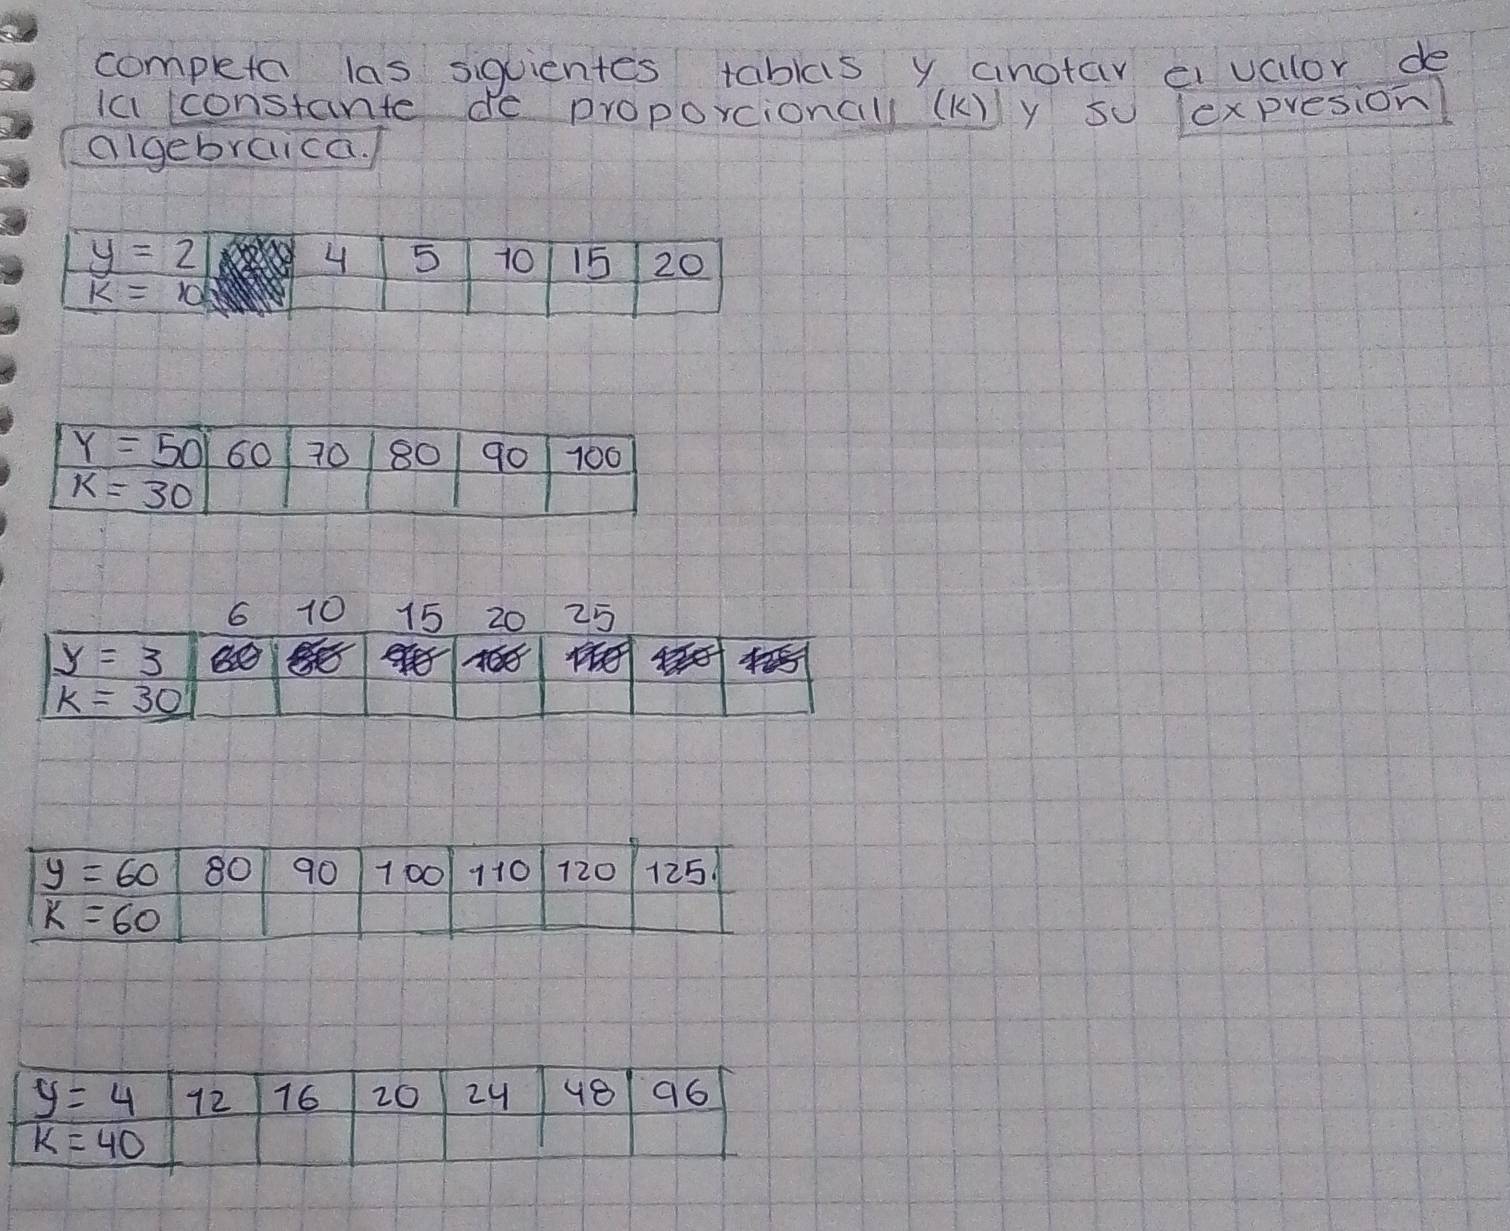 completa las siguientes tablas y anotar el valor de
la constante de proporcionall (K) y su expresion
algebraica.
y = 2 4 5 10 15 20
K = 10
Y = 50 60 70 80 90 100
K = 30
6 10 15 20 25
y = 3
K = 30
y = 60 80 90 100 110 120 125.
K = 60
y = 4 12 16 20 24 48 96
K = 40